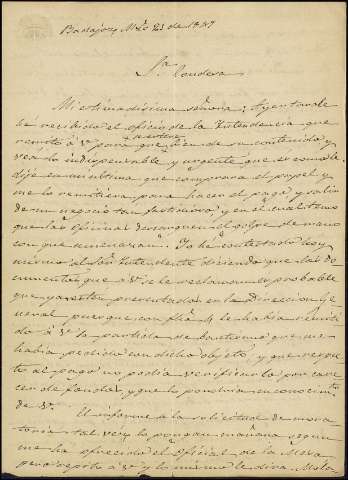 Badajoz, Mzo 23 de 1849
Sra Condesa
Mi estimadisima señora: Ayer tarde
hé recibido el oficio de la Intendencia que
remito á V. para que se entere bien de su contenido, y
vea lo indispensable y urgente que es como le
dije en mi ultima que comprara el papel y
me lo remitiera para hacer el pago y salir
de un negocio tan fastidioso, y en el cual temo
que las oficinas descarguen el golpe de mano
con que amenazan. Yo he contestado hoy
mismo al Sor Intendente diciendo que los do
cumentos que á V. se le reclaman es probable
que ya esten presentados en la Direccion Ge
neral puesque con fha 4 le habia remiti
do á V. la partida de bautismo que me
habia pedido con dicho objeto, y que respec
to al pago no podia verificarlo por care
cer de fondos y que lo pondria en conocimto
de V.
El informe á la solicitud de mora
toria tal vez lo pongan mañana segun
me ha ofrecido el oficial de la Mesa
pero repito á V. y lo mismo le dirá Mola